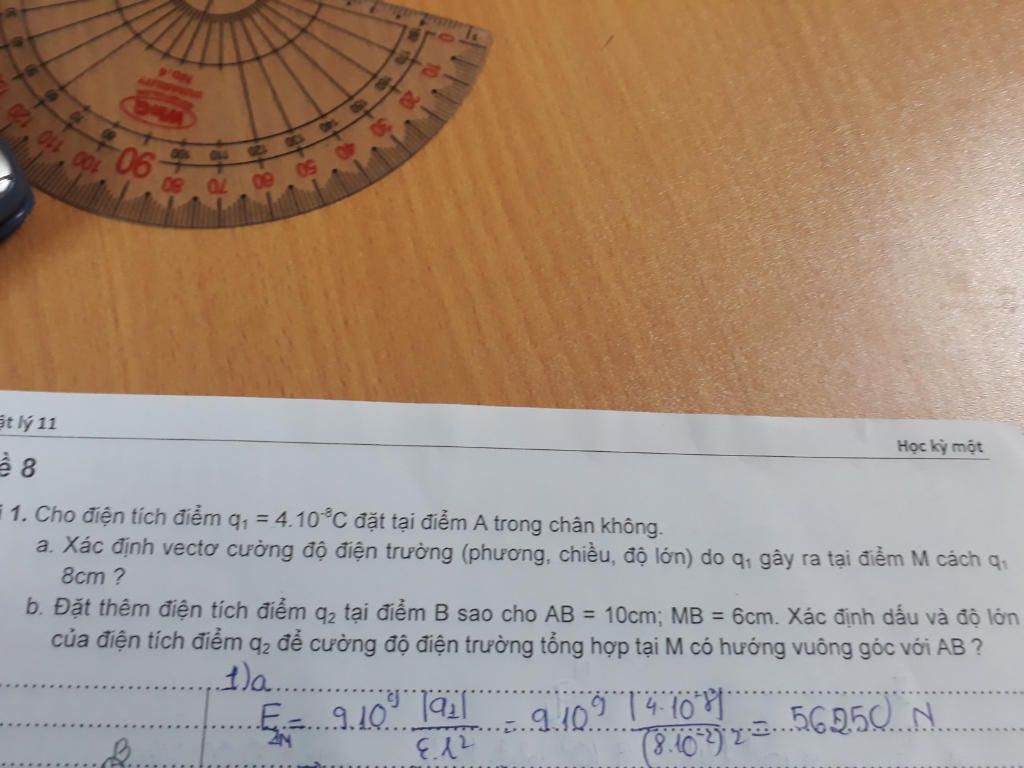 0
10
20
30
40
50
60
70
80
90
100
110
120
WinQ
No.4
ật lý 11
Học kỳ một
ề 8
i 1. Cho điện tích điểm q₁ = 4.10⁻⁸C đặt tại điểm A trong chân không.
a. Xác định vectơ cường độ điện trường (phương, chiều, độ lớn) do q₁ gây ra tại điểm M cách q₁
8cm ?
b. Đặt thêm điện tích điểm q₂ tại điểm B sao cho AB = 10cm; MB = 6cm. Xác định dấu và độ lớn
của điện tích điểm q₂ để cường độ điện trường tổng hợp tại M có hướng vuông góc với AB ?
1)a
E₁M = 9.10⁹ |q₁| / ε.r² = 9.10⁹ |4.10⁻⁸| / (8.10⁻²)² = 56250 N
B